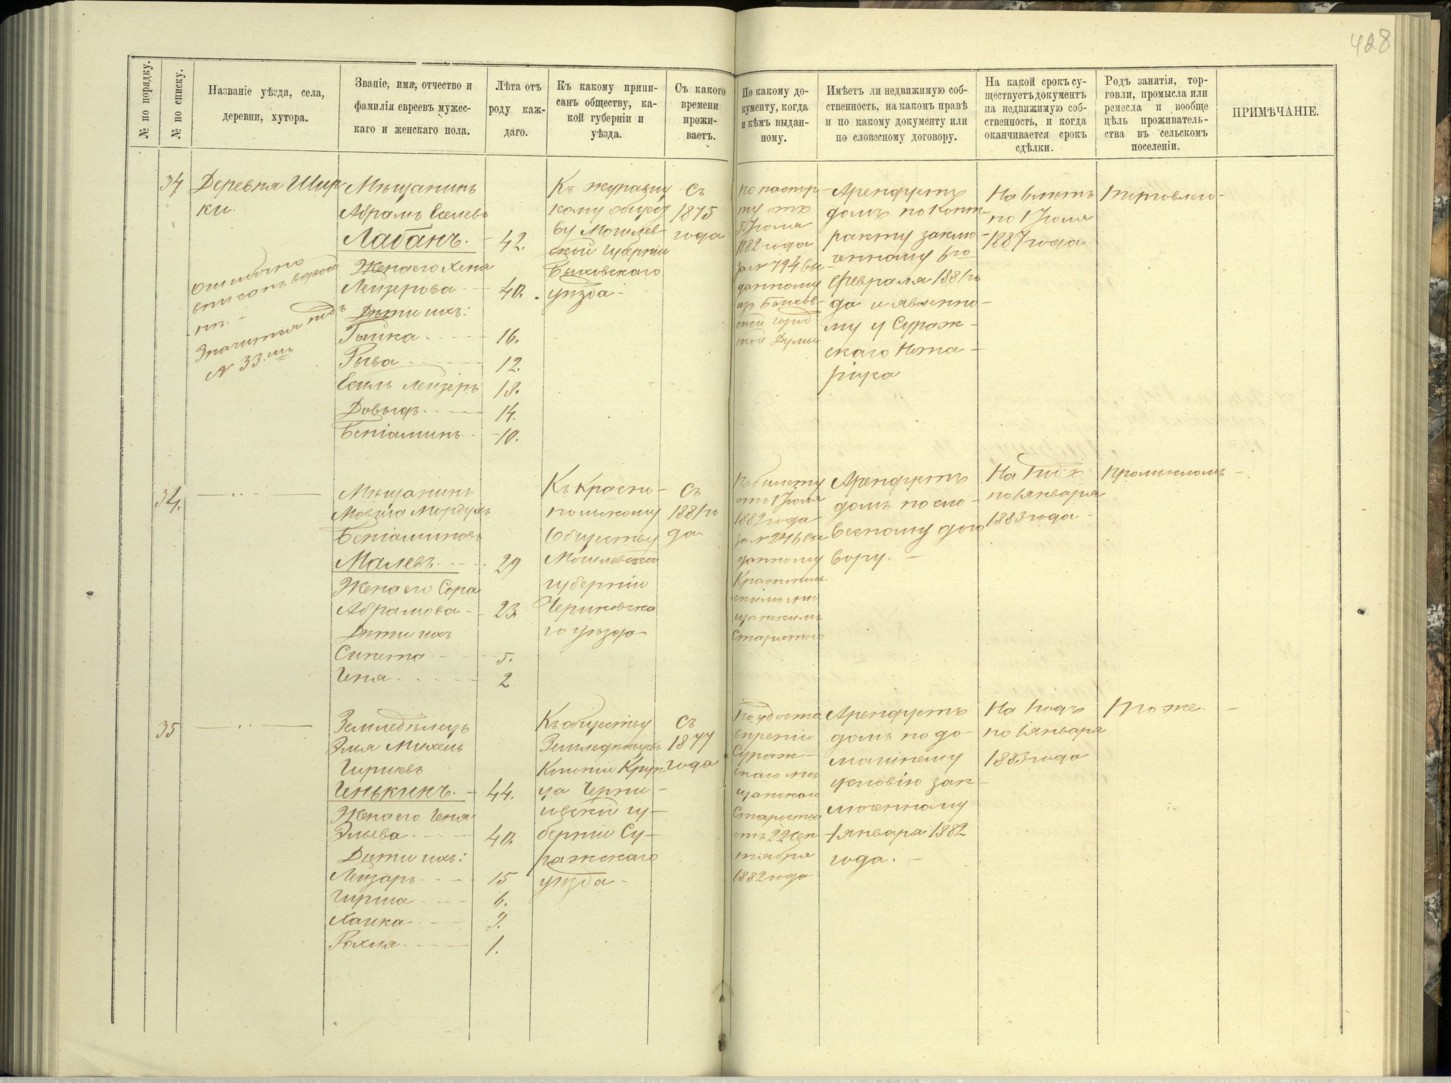 428
№ по порядку.
№ по списку.
Названіе уѣзда, села,
деревни, хутора.
Званіе, имя, отчество и
фамилія евреевъ мужес-
каго и женскаго пола.
Лѣта отъ
роду каж-
даго.
Къ какому припи-
санъ обществу, ка-
кой губерніи и
уѣзда.
Съ какого
времени
прожи-
ваетъ.
По какому до-
кументу, когда
и кѣмъ выдан-
ному.
Имѣетъ ли недвижимую соб-
ственность, на какомъ правѣ
и по какому документу или
по словесному договору.
На какой срокъ су-
ществуетъ документъ
на недвижимую соб-
ственность, и когда
оканчивается срокъ
сдѣлки.
Родъ занятія, тор-
говли, промысла или
ремесла и вообще
цѣль проживатель-
ства въ сельскомъ
поселеніи.
ПРИМѢЧАНІЕ.
34
Деревня
ки.
ошибочно
Значится подъ
№ 33.мъ
Мѣщанинъ
Абрамъ
Лабанъ. - 42.
Жена его Хана
Лейзерова - 40.
Дѣти ихъ:
16.
Рыва 12.
Лейзеръ 18.
Довыдъ 14.
Беніаминъ 10.
Къ
кому общес
ву Могилев-
ской губерніи
Быховскаго
уѣзда -
Съ
1875
года
По паспор-
ту отъ
5 Іюля
1882 года
за № 794 вы-
данному
Думы
Арендуетъ
домъ по конт-
ракту заклю-
ченному 6го
февраля 1881 го
да и явленно-
му у Сураж-
скаго Нота-
ріуса
На 6 лѣтъ
по 1 Іюля
1887 года
Торговлею -
34.
Мѣщанинъ
Мовша Мордухъ
Беніаминовъ
Малевъ 29
Жена его Сора
Абрамова - 23
Дѣти ихъ
5.
Геня 2
Къ Красно-
польскому
Обществу
Могилевской
губерніи
Чериковска
го уѣзда -
Съ
1881 го
да
По билету
отъ 1 Іюля
1882 года
за № 246 вы
данному
Старостою
Арендуетъ
домъ по сло-
весному дого
вору. -
На годъ
по 1 января
1883 года
Промысломъ -
35
Земледѣлецъ
Михель
Гиршевъ
Генькинъ. - 44.
Жена его Геня
40.
Дѣти ихъ:
Лейзаръ 15
Гирша 6.
Хайка 3.
Рохля 1.
Къ обществу
Земледѣльцевъ
Колоніи
ца Черни-
говской гу-
берніи Су-
ражскаго
уѣзда -
Съ
1877
года
По удосто
вѣренію
Сураж-
скаго мѣ
щанскаго
Старосты
отъ 22 Сен
тября
1882 года
Арендуетъ
домъ по до-
машнему
условію зак-
люченному
1 января 1882
года. -
На годъ
по 1 января
1883 года
Тоже -